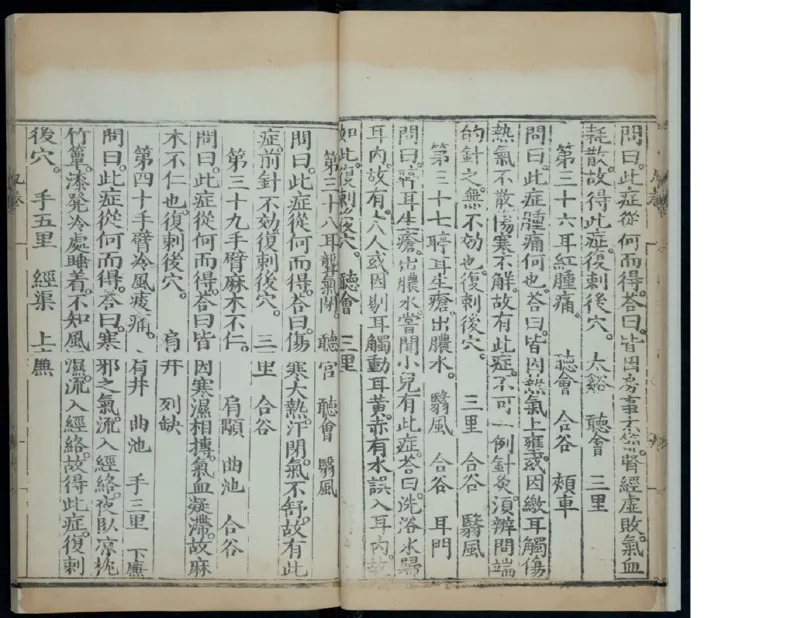 問曰。此症從何而得。答曰。皆因房事不節。腎經虛敗。氣血
耗散。故得此症。復刺後穴。 太谿 聽會 三里
第三十六耳紅腫痛。 聽會 合谷 頰車
問曰。此症腫痛何也。答曰。皆因熱氣上壅。或因繳耳觸傷
熱氣不散。傷寒不解。故有此症。不可一例針灸。須辨問端
的針之。無不効也。復刺後穴。 三里 合谷 翳風
第三十七聤耳生瘡。出膿水。 翳風 合谷 耳門
問曰。聤耳生瘡。出膿水。嘗聞小兒有此症。答曰。洗浴水歸
耳内。故有。大人或因剔耳觸動耳黃。亦有水誤入耳内。故
如此。復刺後穴。 聽會 三里
第三十八耳聾氣閉。 聽宮 聽會 翳風
問曰。此症從何而得。答曰。傷寒大熱。汗閉氣不舒。故有此
症。前針不効。復刺後穴。 三里 合谷
第三十九手臂麻木不仁。 肩顒 曲池 合谷
問曰。此症從何而得。答曰。皆因寒濕相摶。氣血凝滯。故麻
木不仁也。復刺後穴。 肩井 列缺
第四十手臂冷風痠痛。 肩井 曲池 手三里 下廉
問曰。此症從何而得。答曰。寒邪之氣。流入經絡。夜臥凉枕
竹簟。漆凳冷處睡着。不知風濕。流入經絡。故得此症。復刺
後穴。 手五里 經渠 上廉